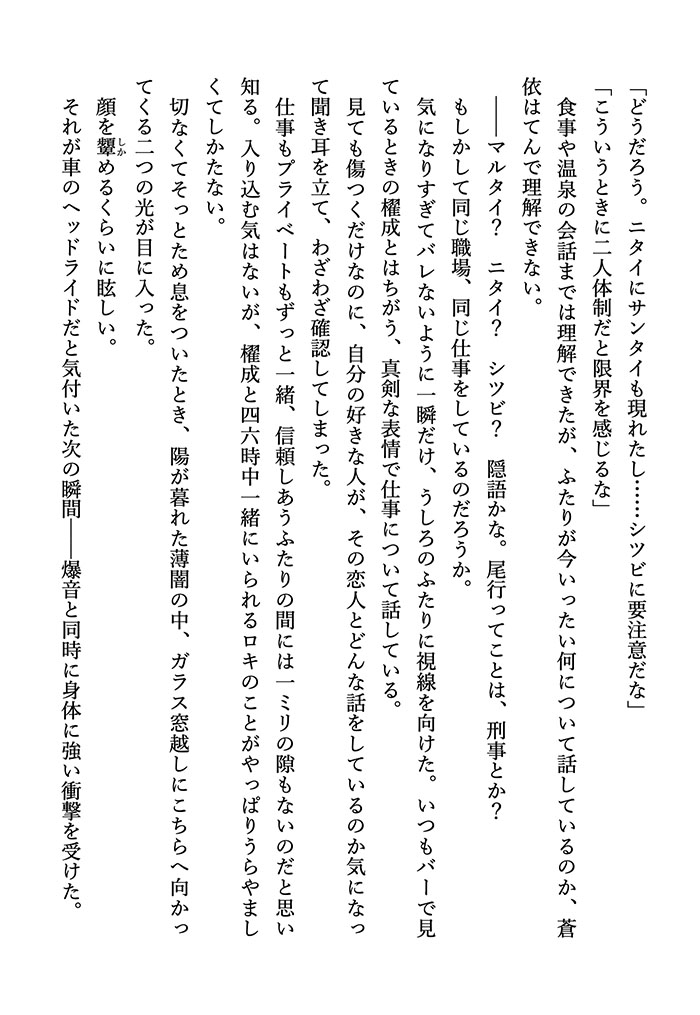 「どうだろう。ニタイにサンタイも現れたし……シツビに要注意だな」
「こういうときに二人体制だと限界を感じるな」
　食事や温泉の会話までは理解できたが、ふたりが今いったい何について話しているのか、蒼
依はてんで理解できない。
　――マルタイ？　ニタイ？　シツビ？　隠語かな。尾行ってことは、刑事とか？
　もしかして同じ職場、同じ仕事をしているのだろうか。
　気になりすぎてバレないように一瞬だけ、うしろのふたりに視線を向けた。いつもバーで見
ているときの櫂成とはちがう、真剣な表情で仕事について話している。
　見ても傷つくだけなのに、自分の好きな人が、その恋人とどんな話をしているのか気になっ
て聞き耳を立て、わざわざ確認してしまった。
　仕事もプライベートもずっと一緒、信頼しあうふたりの間には一ミリの隙もないのだと思い
知る。入り込む気はないが、櫂成と四六時中一緒にいられるロキのことがやっぱりうらやまし
くてしかたない。
　切なくてそっとため息をついたとき、陽が暮れた薄闇の中、ガラス窓越しにこちらへ向かっ
てくる二つの光が目に入った。
　顔を顰しかめるくらいに眩しい。
　それが車のヘッドライドだと気付いた次の瞬間――爆音と同時に身体に強い衝撃を受けた。